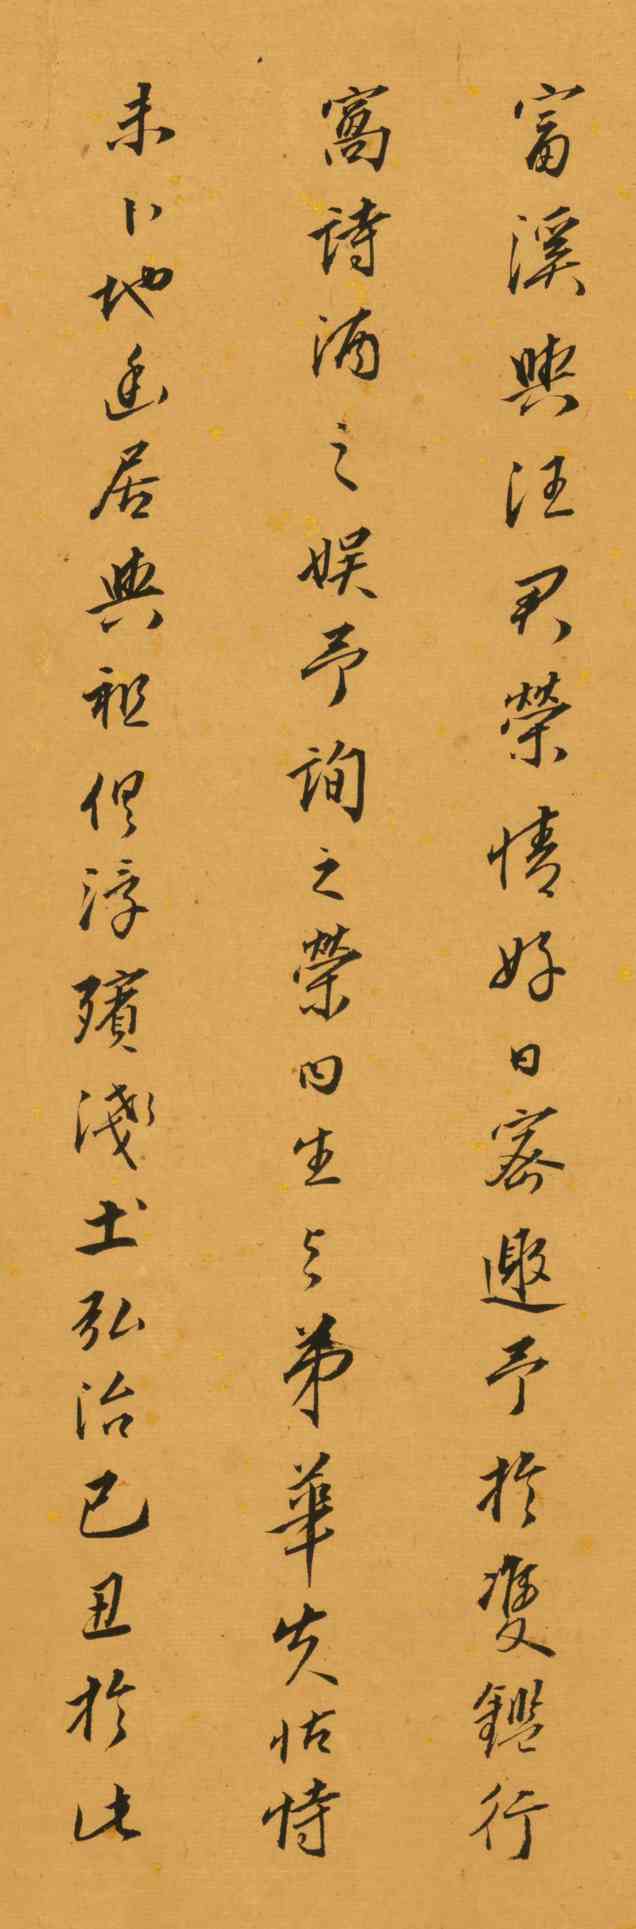 富溪與汪君榮情好日密邀予於雙鑑行
窩詩酒之娛予詢之榮曰生与弟華失怙恃
未卜地迁居與祖俱浮殯淺土弘治己丑於此